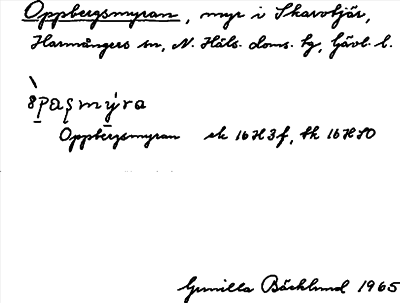 Oppbergsmyran, myr i Skarvtjär,
Harmångers sn, N. Häls. doms. hg, Gävl. l.
Oppbergsmyran ek 16H3f, tk 16H SO
Gunilla Bäcklund 1965